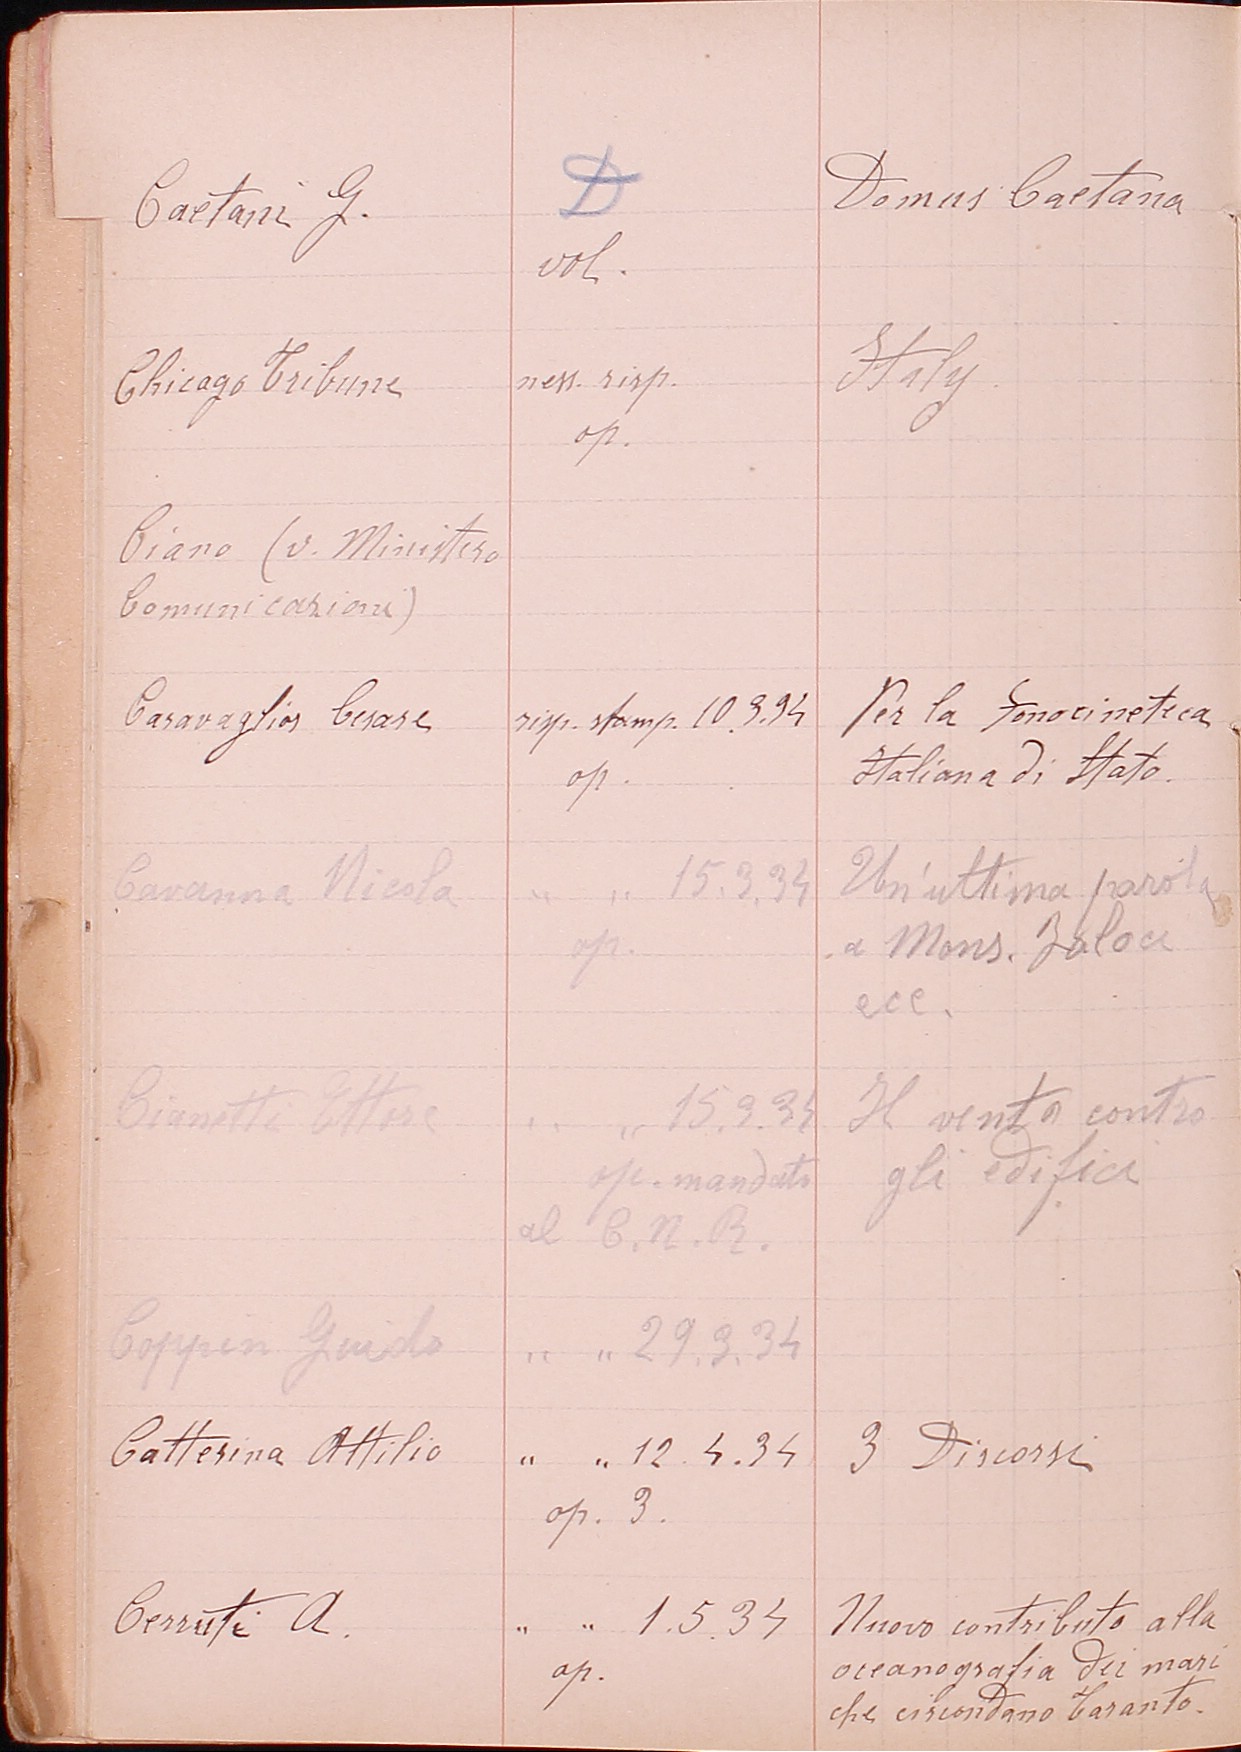 Caetani G. D Domus Caetana
vol.
Chicago Tribune ness. risp. Italy
op.
Ciano (v. Ministero
Comunicazioni)
Caravaglios Cesare risp. stamp. 10.3.34 Per la Fonocineteca
op. Italiana di Stato.
Cavanna Nicola " " 15.3.34 Un'ultima parola
op. a Mons. Faloci
ecc.
Cianetti Ettore " " 15.3.34 Il vento contro
op. mandato gli edifici
al C.N.R.
Coppin Guido " " 29.3.34
Catterina Attilio " " 12.4.34 3 Discorsi
op. 3.
Cerruti A. " " 1.5.34 Nuovo contributo alla
op. oceanografia dei mari
che circondano Taranto.